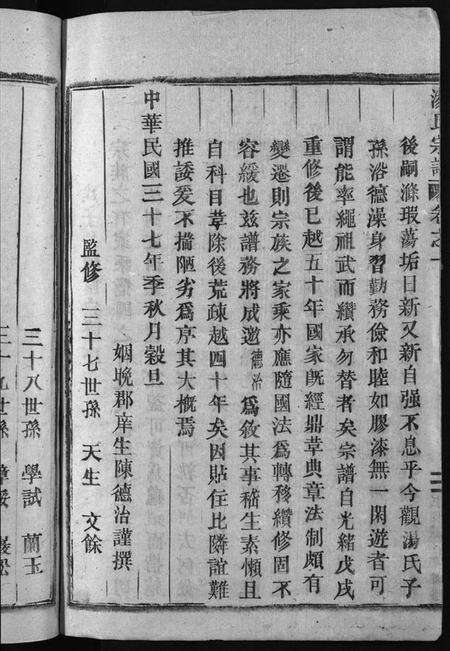 湯氏宗譜 卷之一
後嗣滌瑕蕩垢日新又新自强不息乎今觀湯氏子
孫浴德澡身習勤務儉和睦如膠漆無一閑遊者可
謂能率繩祖武而纘承勿替者矣宗譜自光緒戊戌
重修後已越五十年國家旣經鼎革典章法制頗有
變遷則宗族之家乘亦應隨國法爲轉移纘修固不
容緩也玆譜務將成邀德治爲敘其事嵇生素懶且
自科目革除後荒疎越四十年矣因貼在比隣誼難
推諉爰不揣陋劣爲序其大概焉
中華民國三十七年季秋月穀旦
姻晚郡庠生陳德治謹撰
監修 三十七世孫 天生 文餘
三十八世孫 學試 蘭玉